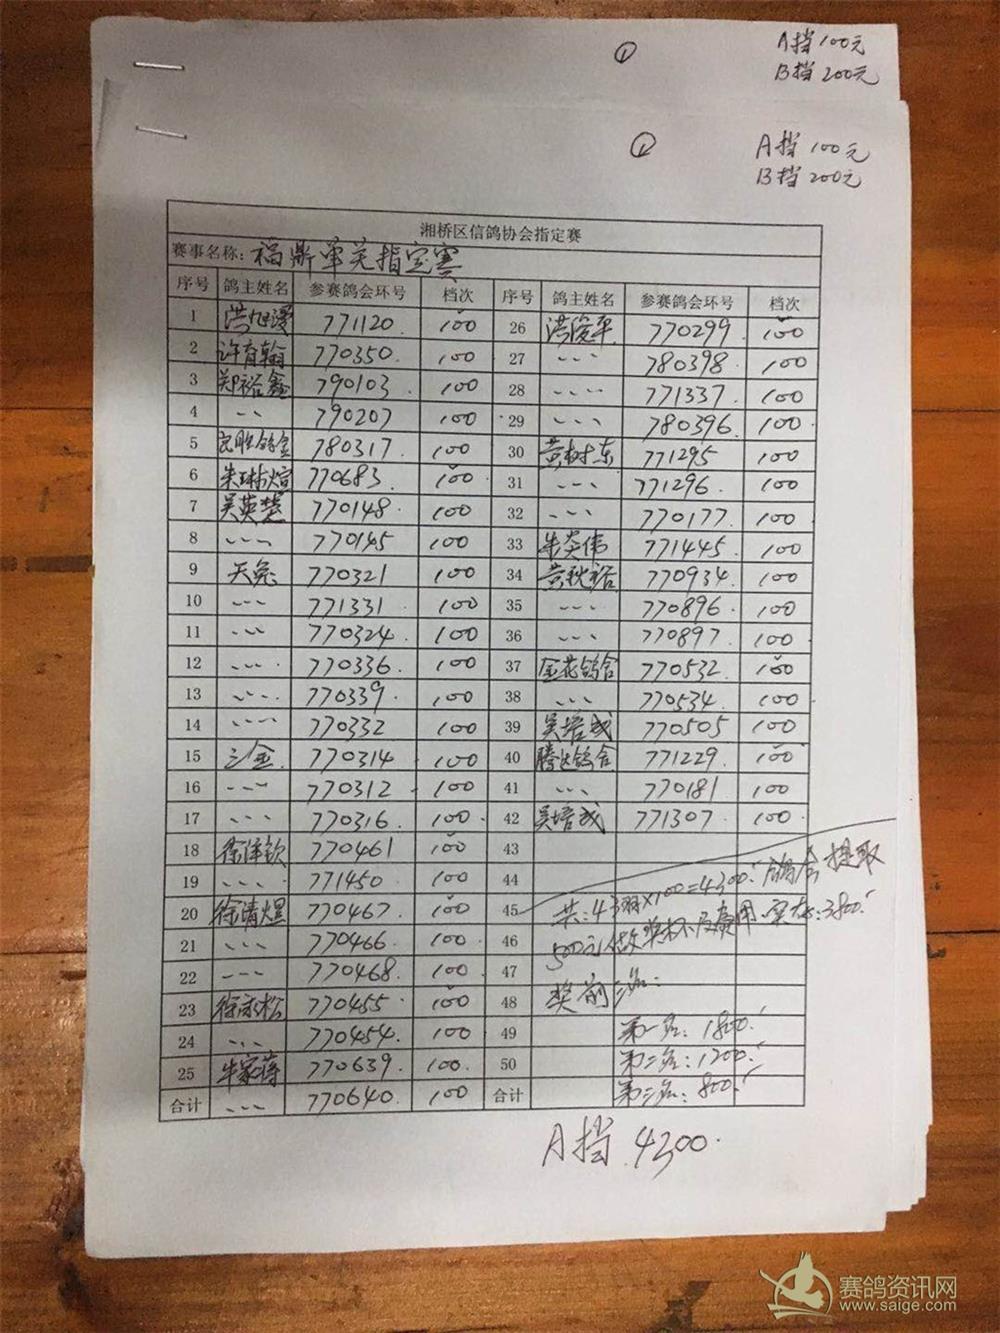 ① A挡 100元
B挡 200元
① A挡 100元
B挡 200元
湘桥区信鸽协会指定赛
赛事名称：福鼎单关指定赛
序号 鸽主姓名 参赛鸽会环号 档次 序号 鸽主姓名 参赛鸽会环号 档次
1 771120 100 26 洪俊平 770299 100
2 许育翰 770350 100 27 〃 780398 100
3 郑裕鑫 790103 100 28 〃 771337 100
4 〃 790207 100 29 〃 780396 100
5 780317 100 30 黄树东 771295 100
6 朱琳煊 770683 100 31 〃 771296 100
7 吴英慧 770148 100 32 〃 770177 100
8 〃 770145 100 33 朱炎伟 771445 100
9 天兔 770321 100 34 黄秋裕 770934 100
10 〃 771331 100 35 〃 770896 100
11 〃 770324 100 36 〃 770897 100
12 〃 770336 100 37 金花鸽舍 770532 100
13 〃 770339 100 38 〃 770534 100
14 〃 770332 100 39 吴培成 770505 100
15 三金 770314 100 40 腾达鸽舍 771229 100
16 〃 770312 100 41 〃 770181 100
17 〃 770316 100 42 吴培成 771307 100
18 徐泽钦 770461 100 43
19 〃 771450 100 44
20 徐清煜 770467 100 45 共：43羽×100=4300.鸽会提取
21 〃 770466 100 46 500元做奖杯及费用.实存:3800.
22 〃 770468 100 47
23 徐永松 770455 100 48 奖前三名：
24 〃 770454 100 49 第一名：1800.
25 770639 100 50 第二名：1200.
合计 〃 770640 100 合计 第三名：800.
A挡 4300.
赛鸽资讯网
www.saige.com